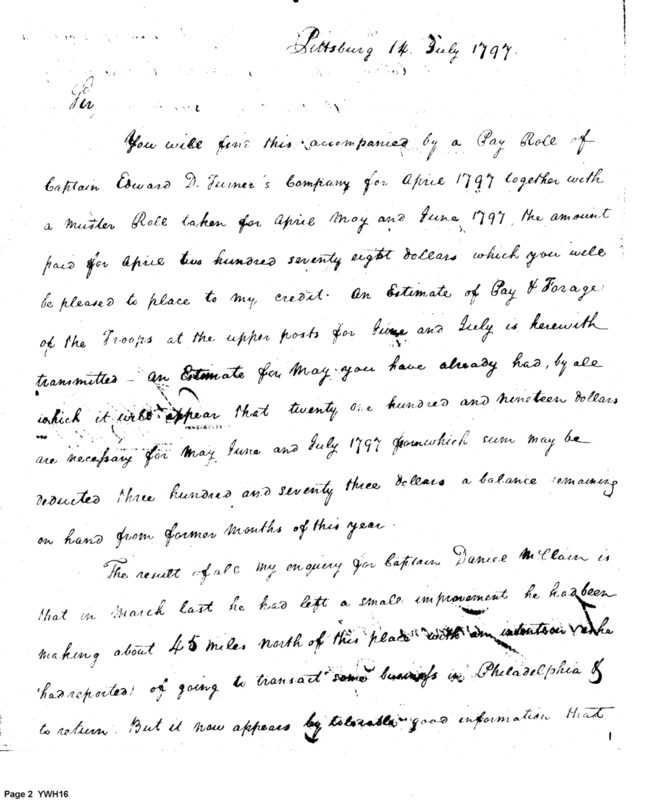 Pittsburg 14 July 1797.
Sir
You will find this accompanied by a Pay Roll of
Captain Edward D. Turner's Company for April 1797 together with
a Muster Roll taken for April May and June 1797, the amount
paid for April two hundred seventy eight dollars which you will
be pleased to place to my credit. An Estimate of Pay & Forage
of the Troops at the upper posts for June and July is herewith
transmitted - an Estimate for May you have already had, by all
which it will appear that twenty one hundred and nineteen dollars
are necessary for May June and July 1797 from which sum may be
deducted three hundred and seventy three dollars a balance remaining
on hand from former months of this year.
The result of all my enquiry for Captain Daniel McClain is
that in March last he had left a small improvement he had been
making about 45 miles north of this place with an intention as he
had reported of going to transact some business in Philadelphia &
to return. But it now appears by tolerable good information that
Page 2 YWH16